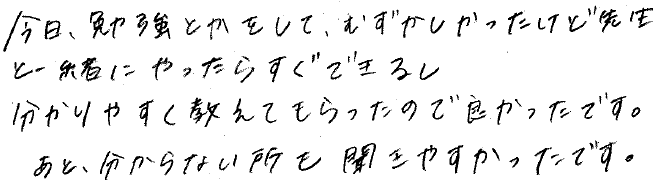 今日、勉強とかをして、むずかしかったけど先生
と一緒にやったらすぐできるし
分かりやすく教えてもらったので良かったです。
あと、分からない所も聞きやすかったです。